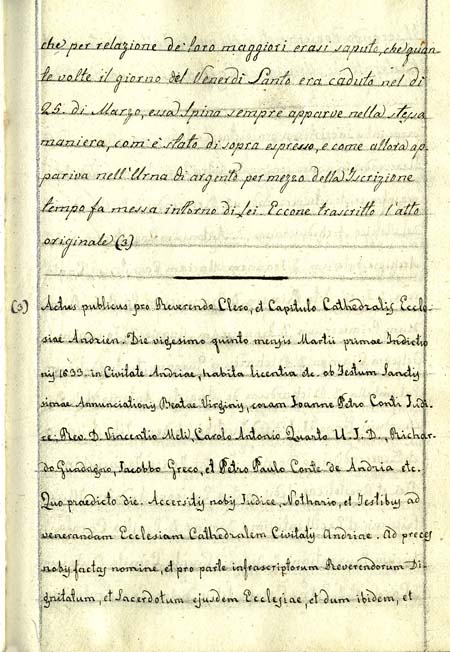 che per relazione de' loro maggiori erasi saputo, che quan-
te volte il giorno del Venerdì Santo era caduto nel dì
25. di Marzo, essa Spina sempre apparve nella stessa
maniera, com'è stato di sopra espresso, e come allora ap-
pariva nell'Urna di argento per mezzo della Iscrizione
tempo fa messa intorno di lei. Eccone trascritto l'atto
originale (3)
(3) Actus publicus pro Reverendo Clero, et Capitulo Cathedralis Eccle-
siae Andrien. Die vigesimo quinto mensis Martii primae Indictio
nis 1633. in Civitate Andriae, habita licentia &c. ob Festum Sanctis
simae Annunciationis Beatae Virginis, coram Joanne Petro Conti Judi-
ce: Rev. D. Vincentio Meli, Carolo Antonio Quarto U. J. D., Richar-
do Guadagno, Jacobbo Greco, et Petro Paulo Conte de Andria etc.
Quo praedicto die. Accersitis nobis Judice, Nothario, et Testibus ad
venerandam Ecclesiam Cathedralem Civitatis Andriae. Ad preces
nobis factas nomine, et pro parte infrascriptorum Reverendorum Di-
gnitatum, et Sacerdotum ejusdem Ecclesiae, et dum ibidem, et